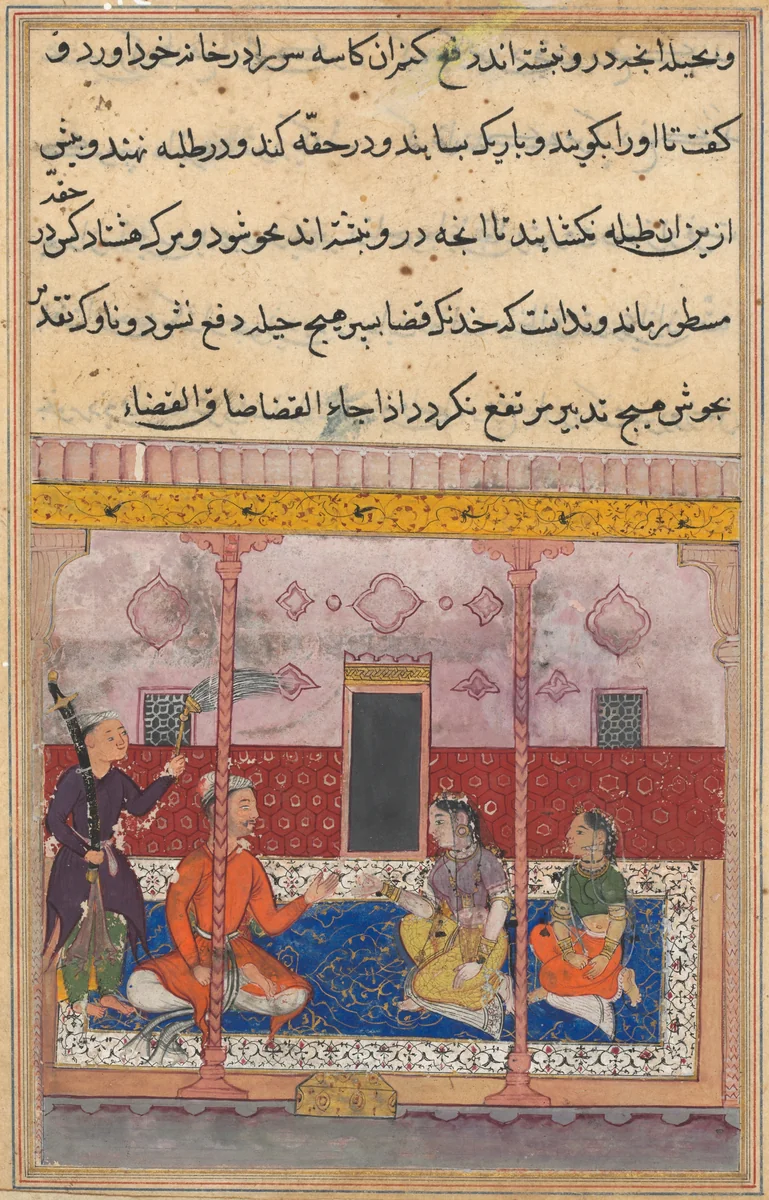 و بحیله انجه در و نبشته اند دفع کنم ان کاسه سر را در خانه خود اورد و
کفت تا او را بکوبند و باریک بسایند و در حقّه کند و در طلبه نهند و بیش
حقّه
ازین ان طبله نکشایند تا انجه در و نبشته اند محو شود و مرک هشتاد کس در
مسطور ماند و ندانست که خدنک قضا بسپر هیچ حیله دفع نشود و ناوک تقدیر
بجوش هیچ تدبیر مرتفع نکردد اذا جاء القضا ضاق القضاء